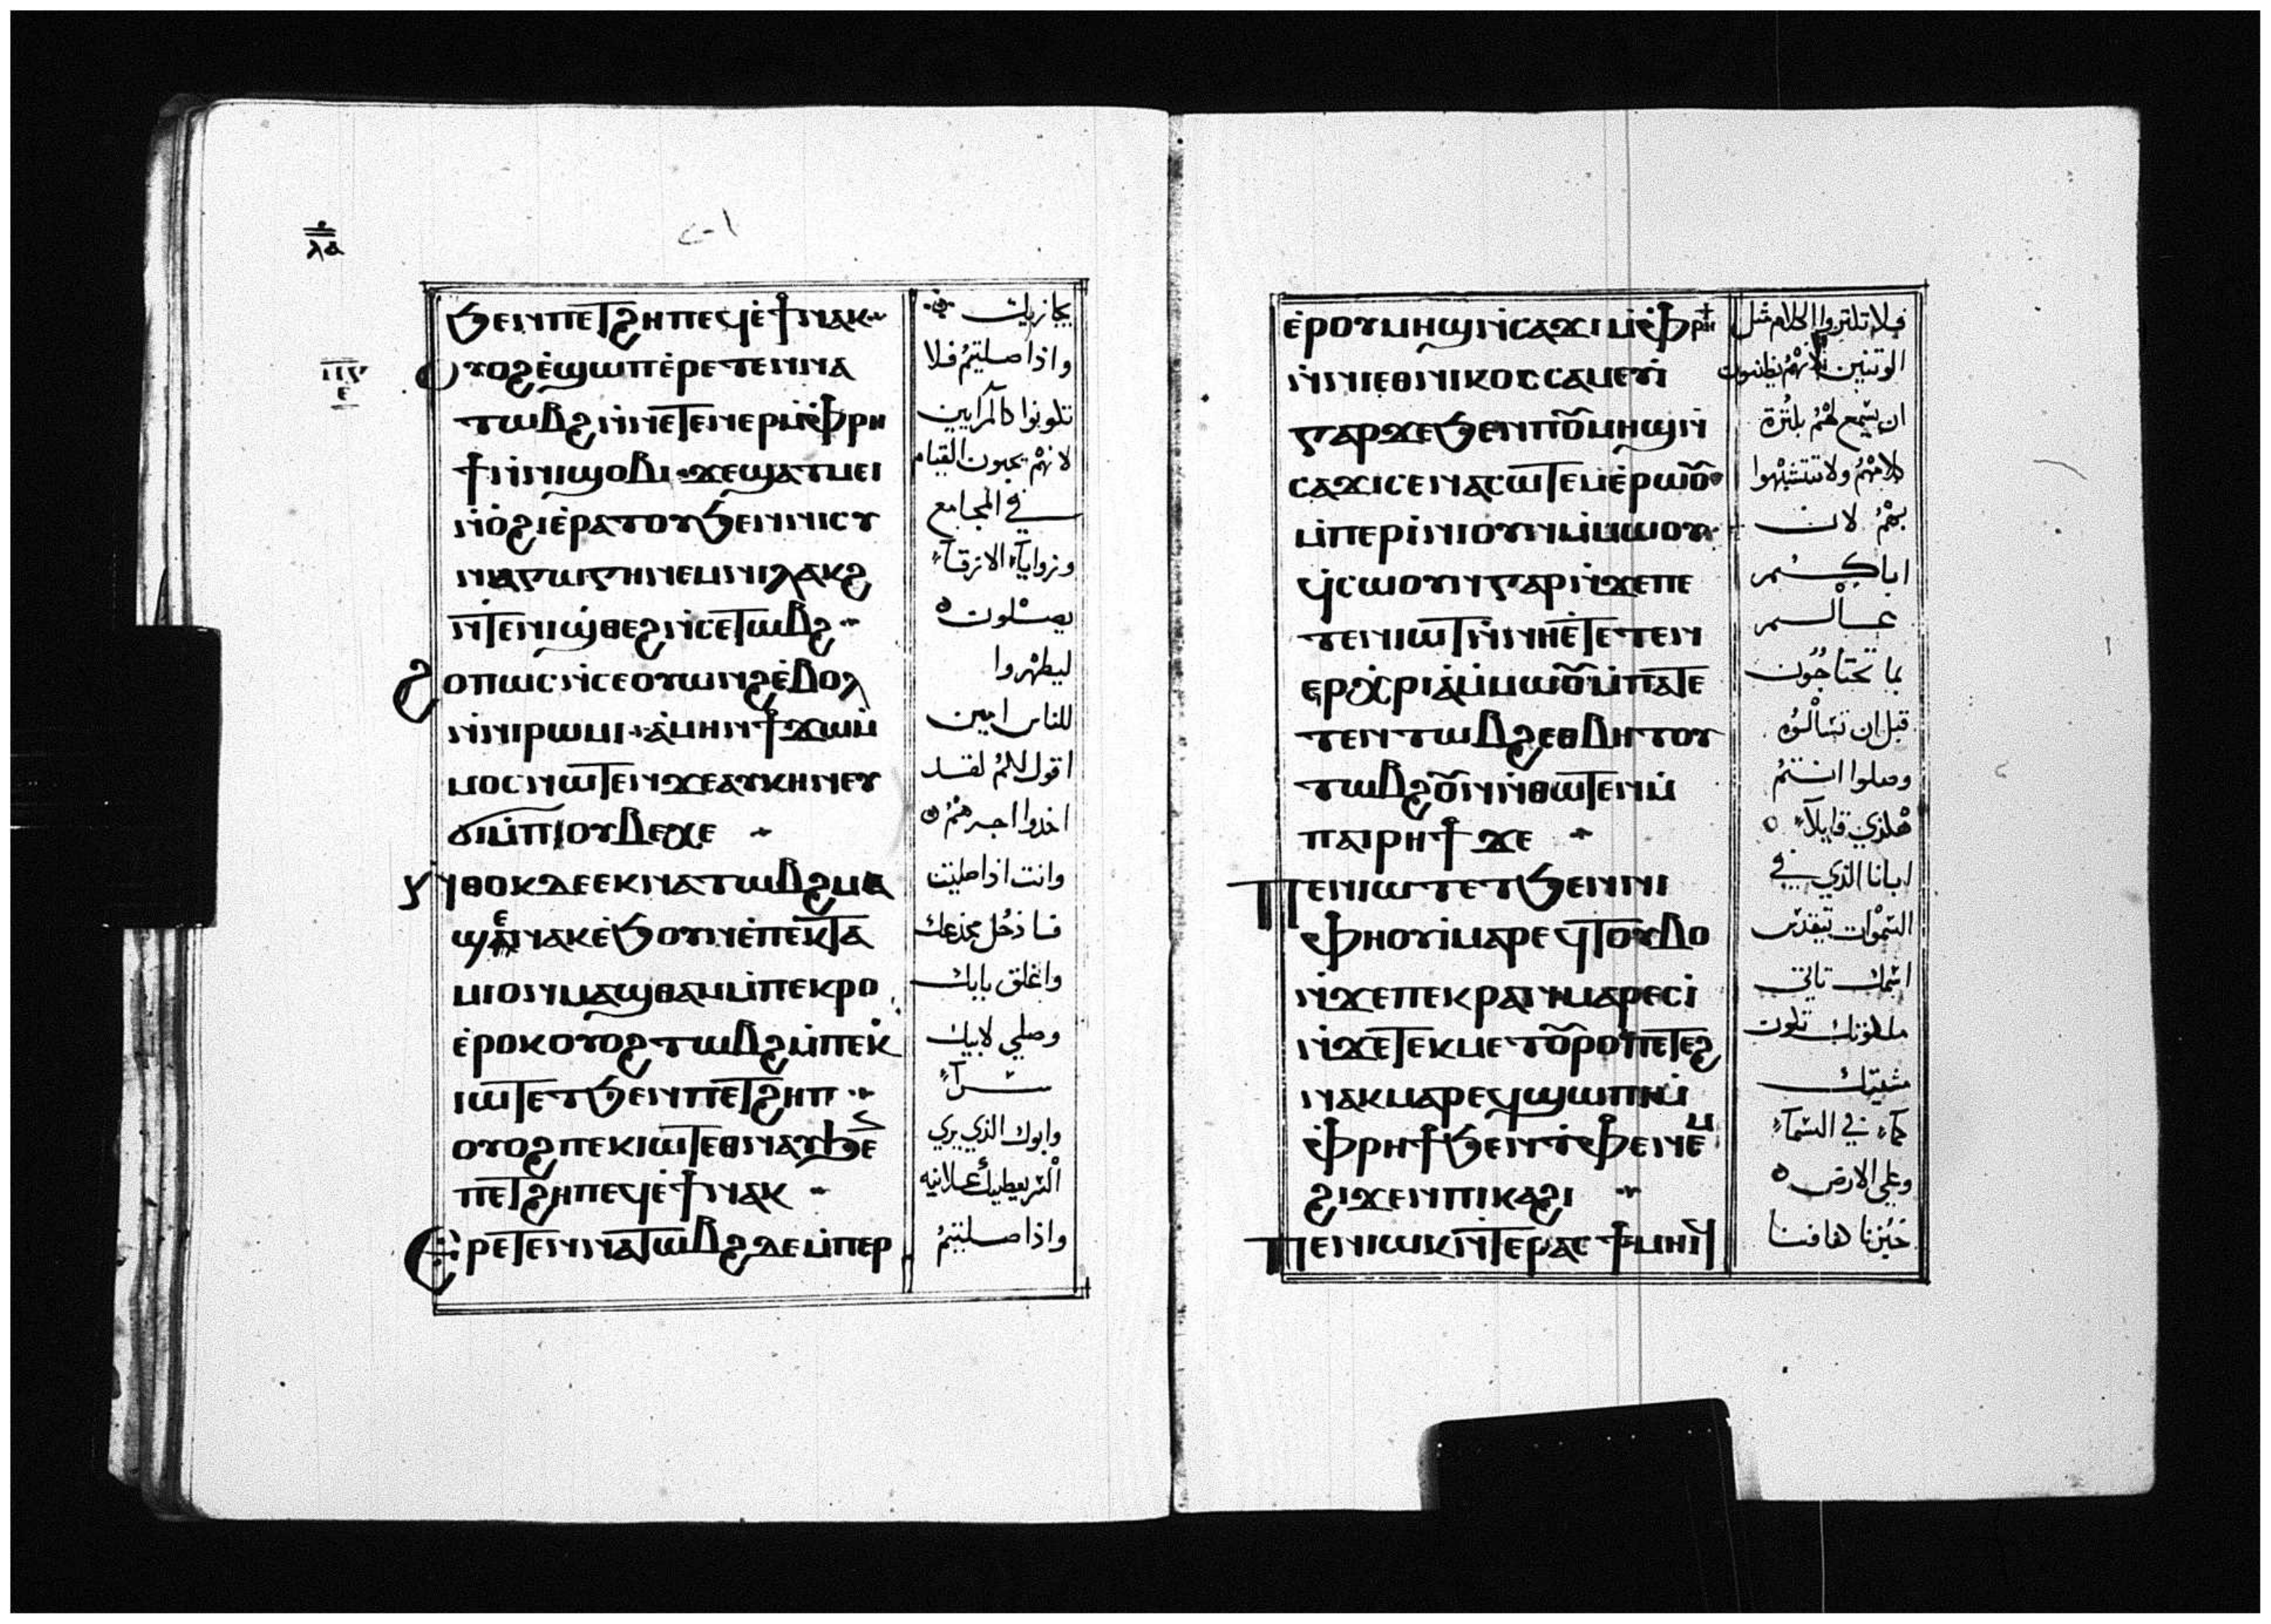 ⲗⲁ
ϧⲉⲛⲡⲉⲧϩⲏⲡⲉϥⲉ̀ϯⲛⲁⲕ
ⲟⲩⲟϩⲉ̀ϣⲱⲡⲉ̀ⲣⲉⲧⲉⲛⲛⲁ
ⲧⲱⲃϩⲛ̀ⲛⲉⲧⲉⲛⲉⲣⲙ̀ⲫⲣⲏ
ϯⲛ̀ⲛⲓϣⲟⲃⲓ ϫⲉϣⲁⲧⲙⲉⲓ
ⲛ̀ⲟ̀ϩⲓⲉ̀ⲣⲁⲧⲟⲩϧⲉⲛⲛⲓⲥⲩ
ⲛⲁⲅⲱⲅⲏⲛⲉⲙⲛⲓⲗⲁⲕϩ
ⲛ̀ⲧⲉⲛⲓϣ̀ⲑⲉϩⲛ̀ⲥⲉⲧⲱⲃϩ
ϩⲟⲡⲱⲥⲛ̀ⲥⲉⲟⲩⲱⲛϩⲉ̀ⲃⲟⲗ
ⲛ̀ⲛⲓⲣⲱⲙⲓ ⲁ̀ⲙⲏⲛϯϫⲱⲙ̀
ⲙⲟⲥⲛⲱⲧⲉⲛϫⲉⲁⲩⲕⲏⲛⲉⲩ
ϭⲓⲙ̀ⲡⲓⲟⲩⲃⲉⲭⲉ
ⲛⲑⲟⲕⲇⲉⲉⲕⲛⲁⲧⲱⲃϩⲙⲁ
ϣⲉⲛⲁⲕⲉ̀ϧⲟⲩⲛⲉ̀ⲡⲉⲕⲧⲁ
ⲙⲓⲟⲛⲙⲁϣⲑⲁⲙⲙ̀ⲡⲉⲕⲣⲟ
ⲉ̀ⲣⲟⲕⲟⲩⲟϩⲧⲱⲃϩⲙ̀ⲡⲉⲕ
ⲓⲱⲧⲉⲧϧⲉⲛⲡⲉⲧϩⲏⲡ
ⲟⲩⲟϩⲡⲉⲕⲓⲱⲧⲉⲑⲛⲁⲩϧⲉ
ⲡⲉⲧϩⲏⲡⲉϥⲉ̀ϯⲛⲁⲕ
ⲉⲣⲉⲧⲉⲛⲛⲁⲧⲱⲃϩⲇⲉⲙ̀ⲡⲉⲣ
يجازيك
واذا صليتمُ فلا
تكونوا كالمرايين
لانهمْ يحبون القيام
في المجامع
وزوايآء الازقآء
يصلون
ليظهروا
للناس امين
اقول لكمُ لقد
اخدوا اجرهمْ
وانت اذا صليت
فادخُل مخدعك
واغلق بابك
وصلي لابيك
سرآء
وابوك الذي يري
السّر يعطيك علانيه
واذا صليتمُ
ⲉ̀ⲣⲟⲩⲙⲏϣⲛ̀ⲥⲁϫⲓⲙ̀ⲫⲣⲏϯ
ⲛ̀ⲛⲓⲉⲑⲛⲓⲕⲟⲥⲥⲁⲙⲉⲩⲓ̀
ⲅⲁⲣϫⲉϧⲉⲛⲡⲟⲩⲙⲏϣⲛ̀
ⲥⲁϫⲓⲥⲉⲛⲁⲥⲱⲧⲉⲙⲉ̀ⲣⲱⲟⲩ
ⲙ̀ⲡⲉⲣⲓ̀ⲛⲓⲟⲩⲛⲙ̀ⲙⲱⲟⲩ
ϥ̀ⲥⲱⲟⲩⲛⲅⲁⲣⲛ̀ϫⲉⲡⲉ
ⲧⲉⲛⲓⲱⲧⲛ̀ⲛⲏⲉ̀ⲧⲉⲧⲉⲛ
ⲉⲣⲭ̀ⲣⲓⲁ̀ⲙ̀ⲙⲱⲟⲩⲙ̀ⲡⲁⲧⲉ
ⲧⲉⲛⲧⲱⲃϩⲉⲑⲃⲏⲧⲟⲩ
ⲧⲱⲃϩⲟⲩⲛⲛ̀ⲑⲱⲧⲉⲛⲙ̀
ⲡⲁⲓⲣⲏϯϫⲉ
ⲡⲉⲛⲓⲱⲧⲉⲧϧⲉⲛⲛⲓ
ⲫⲏⲟⲩⲓ̀ⲙⲁⲣⲉϥⲧⲟⲩⲃⲟ
ⲛ̀ϫⲉⲡⲉⲕⲣⲁⲛⲙⲁⲣⲉⲥⲓ̀
ⲛ̀ϫⲉⲧⲉⲕⲙⲉⲧⲟⲩⲣⲟⲡⲉⲧⲉϩ
ⲛⲁⲕⲙⲁⲣⲉϥϣⲱⲡⲓⲙ̀
ⲫⲣⲏϯϧⲉⲛⲧ̀ⲫⲉⲛⲉⲙ
ϩⲓϫⲉⲛⲡⲓⲕⲁϩⲓ
ⲡⲉⲛⲱⲓⲕⲛ̀ⲧⲉⲣⲁⲥϯⲙⲏⲓϥ
فلا تكثروا الكلام مثل
الوتنين لانهْمُ يظنون
ان يسّمع لهْمُ بكثرة
كلامهْمُ ولا تتشبهْوا
بهْمُ لان
اباكم
عالم
بما تحتاجُون
قبل ان تسّالوُه
وصلوا انتمُ
هْكذي قايلآء
ابانا الذي في
السّموْات يتقدّس
اسّمك تاتي
ملكوتك تكون
مشيتك
كمآء في السّمآء
وعلي الارض
خبُزنا كفافنا